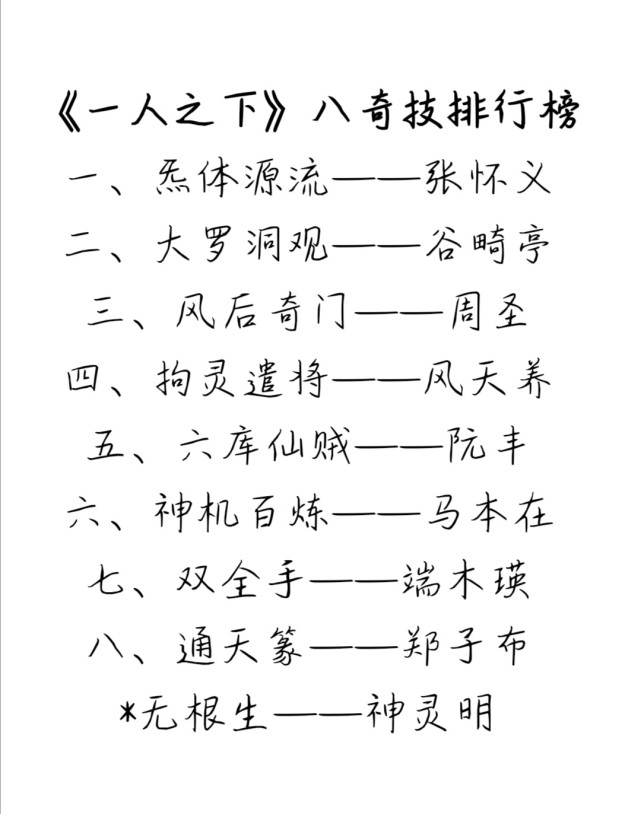 《一人之下》八奇技排行榜
一、炁体源流——张怀义
二、大罗洞观——谷畸亭
三、风后奇门——周圣
四、拘灵遣将——风天养
五、六库仙贼——阮丰
六、神机百炼——马本在
七、双全手——端木瑛
八、通天箓——郑子布
*无根生——神灵明